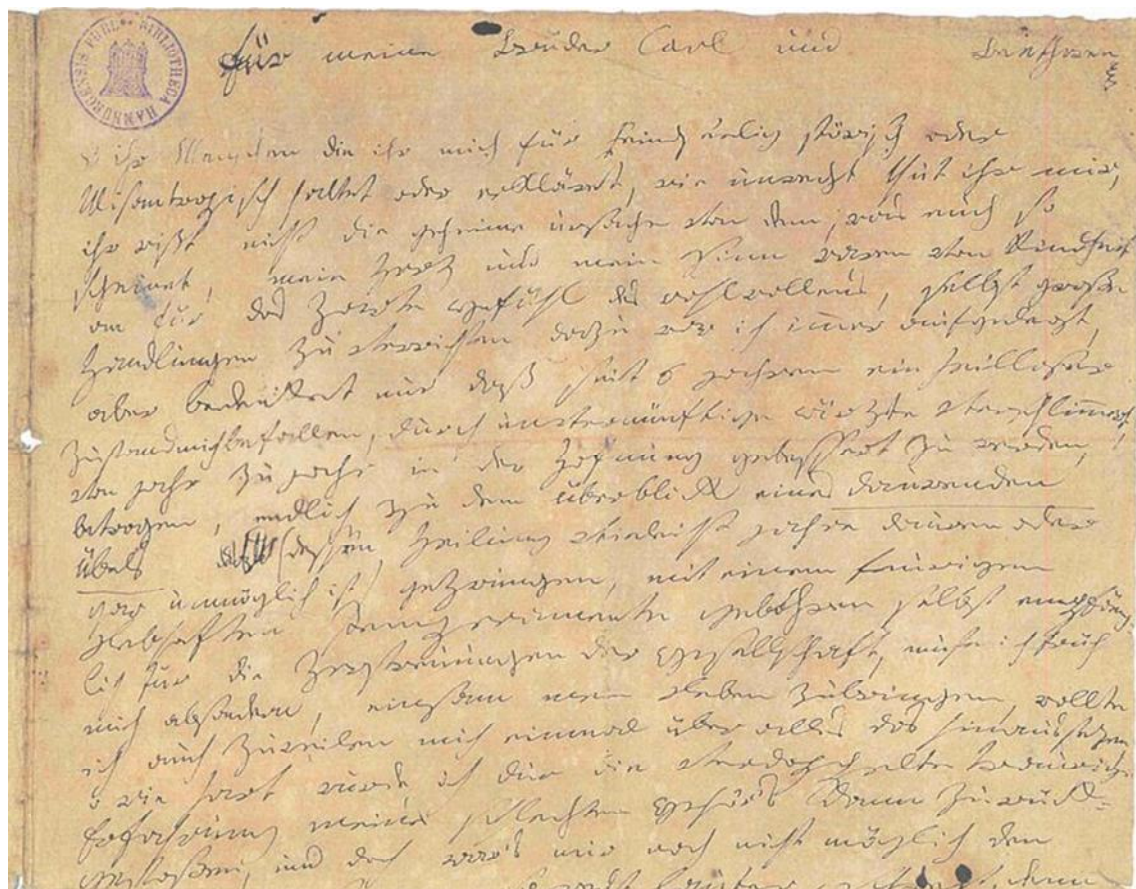 BIBLIOTHECA HAMBURGENSIS PUBLICA
für meine Brüder Carl und Beethowen
o ihr Menschen die ihr mich für Feindseelig störisch oder
Misantropisch haltet oder erkläret, wie unrecht thut ihr mir,
ihr wißt nicht die geheime ursache von dem, was euch so
scheinet, mein Herz und mein Sinn waren von Kindheit
an für das Zarte gefühl des wohlwollens, selbst große
Handlungen zu verrichten dazu war ich immer aufgelegt,
aber bedenket nur daß seit 6 jahren ein heilloser
Zustand mich befallen, durch unvernünftige ärzte verschlimmert,
von jahr zu jahr in der Hofnung gebessert zu werden,
betrogen, endlich zu dem überblick eines daurenden
Übels (dessen Heilung vieleicht jahre dauren oder
gar unmöglich ist) gezwungen, mit einem feurigen
Lebhaften Temperamente gebohren selbst empfäng
lich für die Zerstreuungen der gesellschaft, muste ich früh
mich absondern, einsam mein Leben zubringen, wollte
ich auch zuweilen mich einmal über alles das hinaussezen,
o wie hart wurde ich dur die verdoppelte traurige
Erfahrung meines schlechten gehör's dann zurück-
gestoßen, und doch war's mir noch nicht möglich den